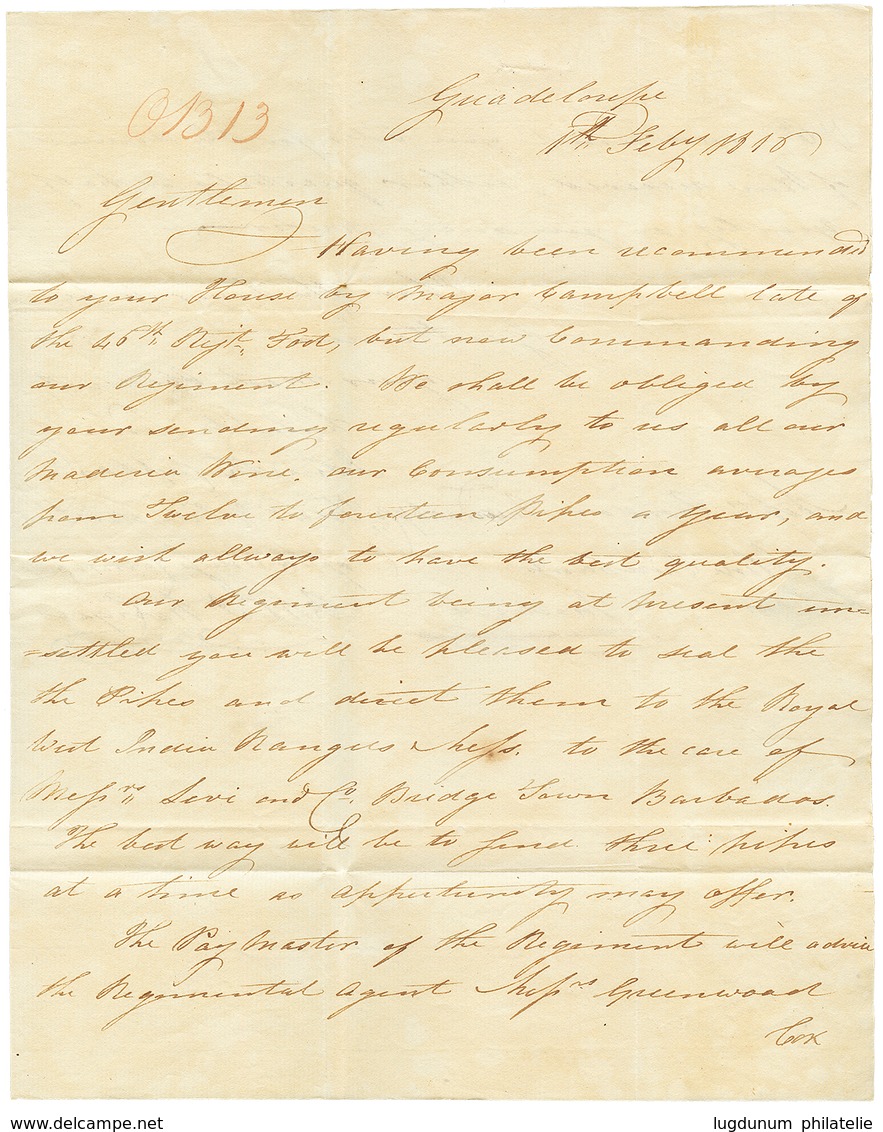 Guadeloupe
OB13
1th Feby 1816
Gentlemen
Having been recommended
to your House by Major Campbell late of
the 46th Rejt. Foot, but now Commanding
our Regiment. We shall be obliged by
your sending regularly to us all our
Maderia Wine. our Consumption averages
from Twelve to fourteen Pipes a year, and
we wish allways to have the best quality.
Our Regiment being at present un=
=settled you will be pleased to seal the
the Pipes and direct them to the Royal
West India Rangers Mess. to the care of
Messrs Levi and Co. Bridge Town Barbados.
The best way will be to send three pipes
at a time as oppertunity may offer.
The Pay Master of the Regiment will advise
the Regimental Agent Messrs Greenwood
Cox
www.delcampe.net
lugdunum philatelie